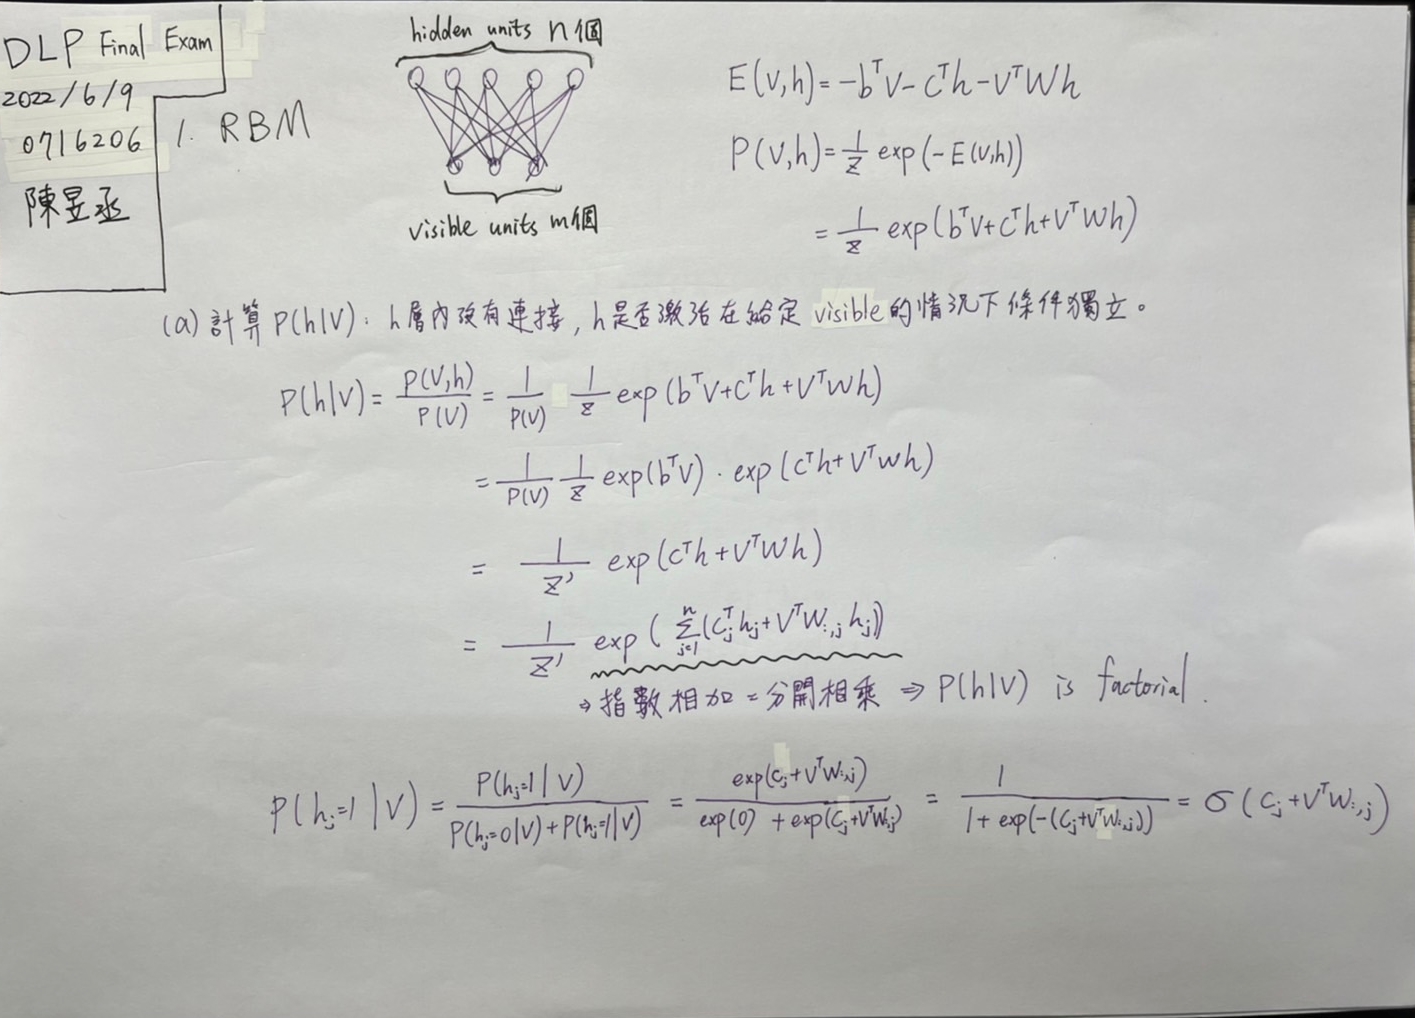 DLP Final Exam
2022/6/9
0716206
陳昱丞
1. RBM
hidden units n個
visible units m個
E(v,h)=-bᵀv-cᵀh-vᵀWh
P(v,h)=1/Z exp(-E(v,h))
=1/Z exp(bᵀv+cᵀh+vᵀWh)
(a) 計算P(h|v): h層內沒有連接, h是否激活在給定 visible的情況下條件獨立。
P(h|v)=P(v,h)/P(v)=1/P(v) 1/Z exp(bᵀv+cᵀh+vᵀWh)
=1/P(v) 1/Z exp(bᵀv)·exp(cᵀh+vᵀWh)
=1/Z' exp(cᵀh+vᵀWh)
=1/Z' exp(∑_{j=1}^{n}(c_jᵀh_j+vᵀW_{:,j}h_j))
→指數相加=分開相乘 ⇒ P(h|v) is factorial.
P(h_j=1|v)=P(h_j=1|v)/(P(h_j=0|v)+P(h_j=1|v))=exp(c_j+vᵀW_{:,j})/(exp(0)+exp(c_j+vᵀW_{:,j}))=1/(1+exp(-(c_j+vᵀW_{:,j})))=σ(c_j+vᵀW_{:,j})